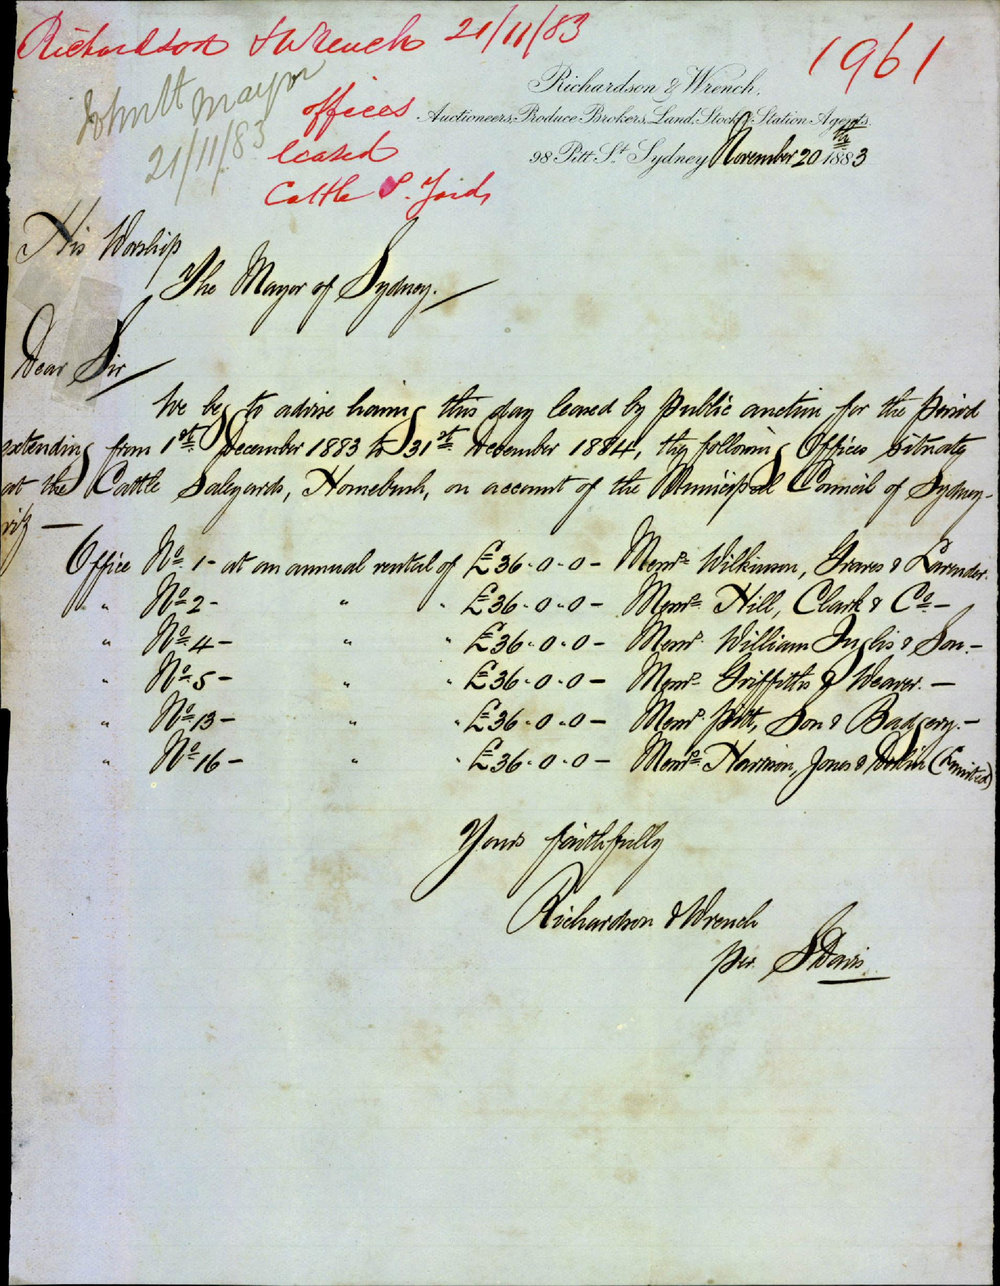 Richardson & Wrench 21/11/83
1961
Mayor
21/11/83
offices
leased
Cattle S. Yards
Richardson & Wrench,
Auctioneers, Produce Brokers, Land, Stock & Station Agents.
98 Pitt St. Sydney November 20th 1883
His Worship
The Mayor of Sydney.
Dear Sir
We beg to advise having this day leased by public auction for the period
extending from 1st December 1883 to 31st December 1884, the following Offices situate
at the Cattle Saleyards, Homebush, on account of the Municipal Council of Sydney-
viz —
Office No. 1 - at an annual rental of £36-0-0 - Messrs Wilkinson, Graves & Lavender.
" No. 2 - " " £36-0-0 - Messrs Hill, Clark & Co. -
" No. 4 - " " £36-0-0 - Messrs. William Inglis & Son. -
" No. 5 - " " £36-0-0 - Messrs Griffiths & Weaver. -
" No. 13 - " " £36-0-0 - Messrs. Pitt, Son & Badgery. -
" No. 16 - " " £36-0-0 - Messrs Harrison, Jones & Devlin (Limited)
Yours faithfully
Richardson & Wrench
per. S Davis